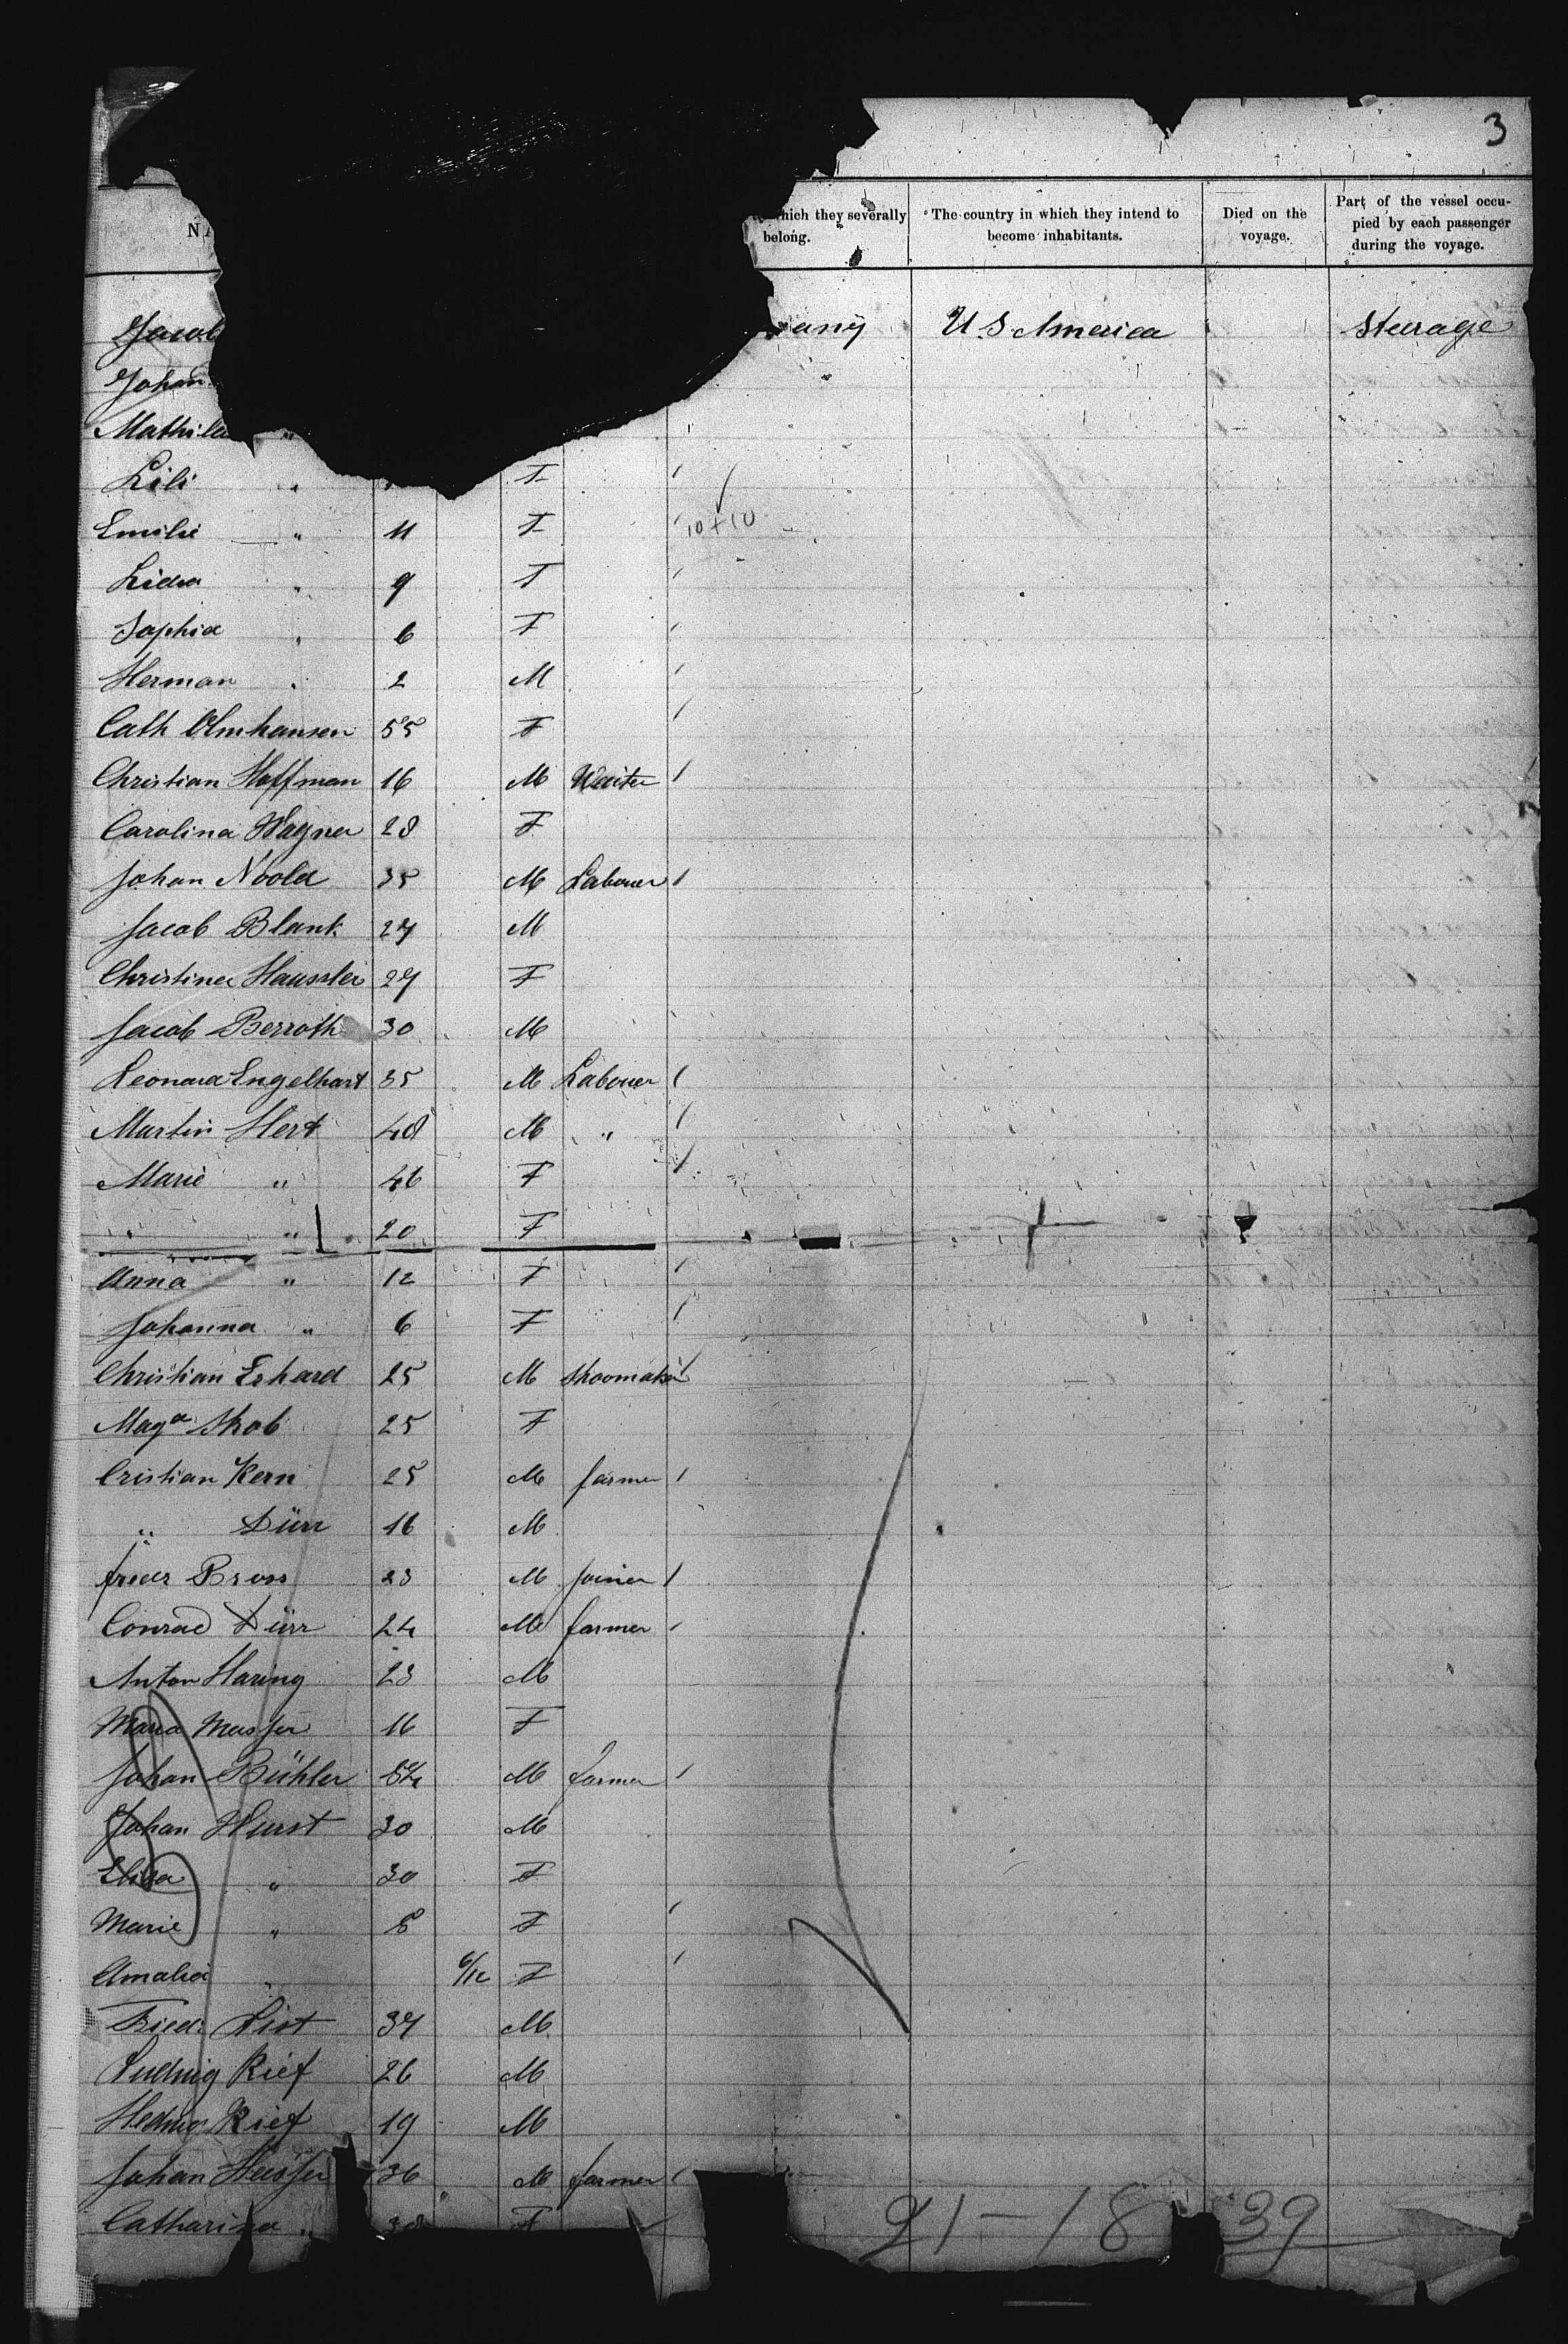 3
which they severally belong.
The country in which they intend to become inhabitants.
Died on the voyage.
Part of the vessel occupied by each passenger during the voyage.
Jacob U.S America Steerage
Johan
Mathild "
Lili " F
Emilie " 11 F 10+10
Lidia " 9 F
Sophia " 6 F
Herman " 2 M
Cath 55 F
Christian Hoffman 16 M Waiter
Carolina Wagner 28 F
Johan 35 M Labouer
Jacob Blank 27 M
Christina Haussler 27 F
Jacob Berroth 30 M
Leonard Engelhart 35 M Labouer
Martin Hert 48 M "
Marie " 46 F
" " 20 F
Anna " 12 F
Johanna " 6 F
Christian Erhard 25 M Shoomaker
Maga Skob 25 F
Cristian Kern 25 M farmer
" Dürr 16 M
frieder 23 M joiner
Conrad Dürr 24 M farmer
Anton Haring 23 M
Maria Masser 16 F
Johan Bühler 54 M farmer
Johan Hurst 30 M
Elisa " 30 F
Marie " 8 F
Amalia " 6/12 F
Friedr List 37 M
Ludwig Rief 26 M
Hedwig Rief 19 M
Johan 36 M farmer
Catharina " 38 F
21-18 39